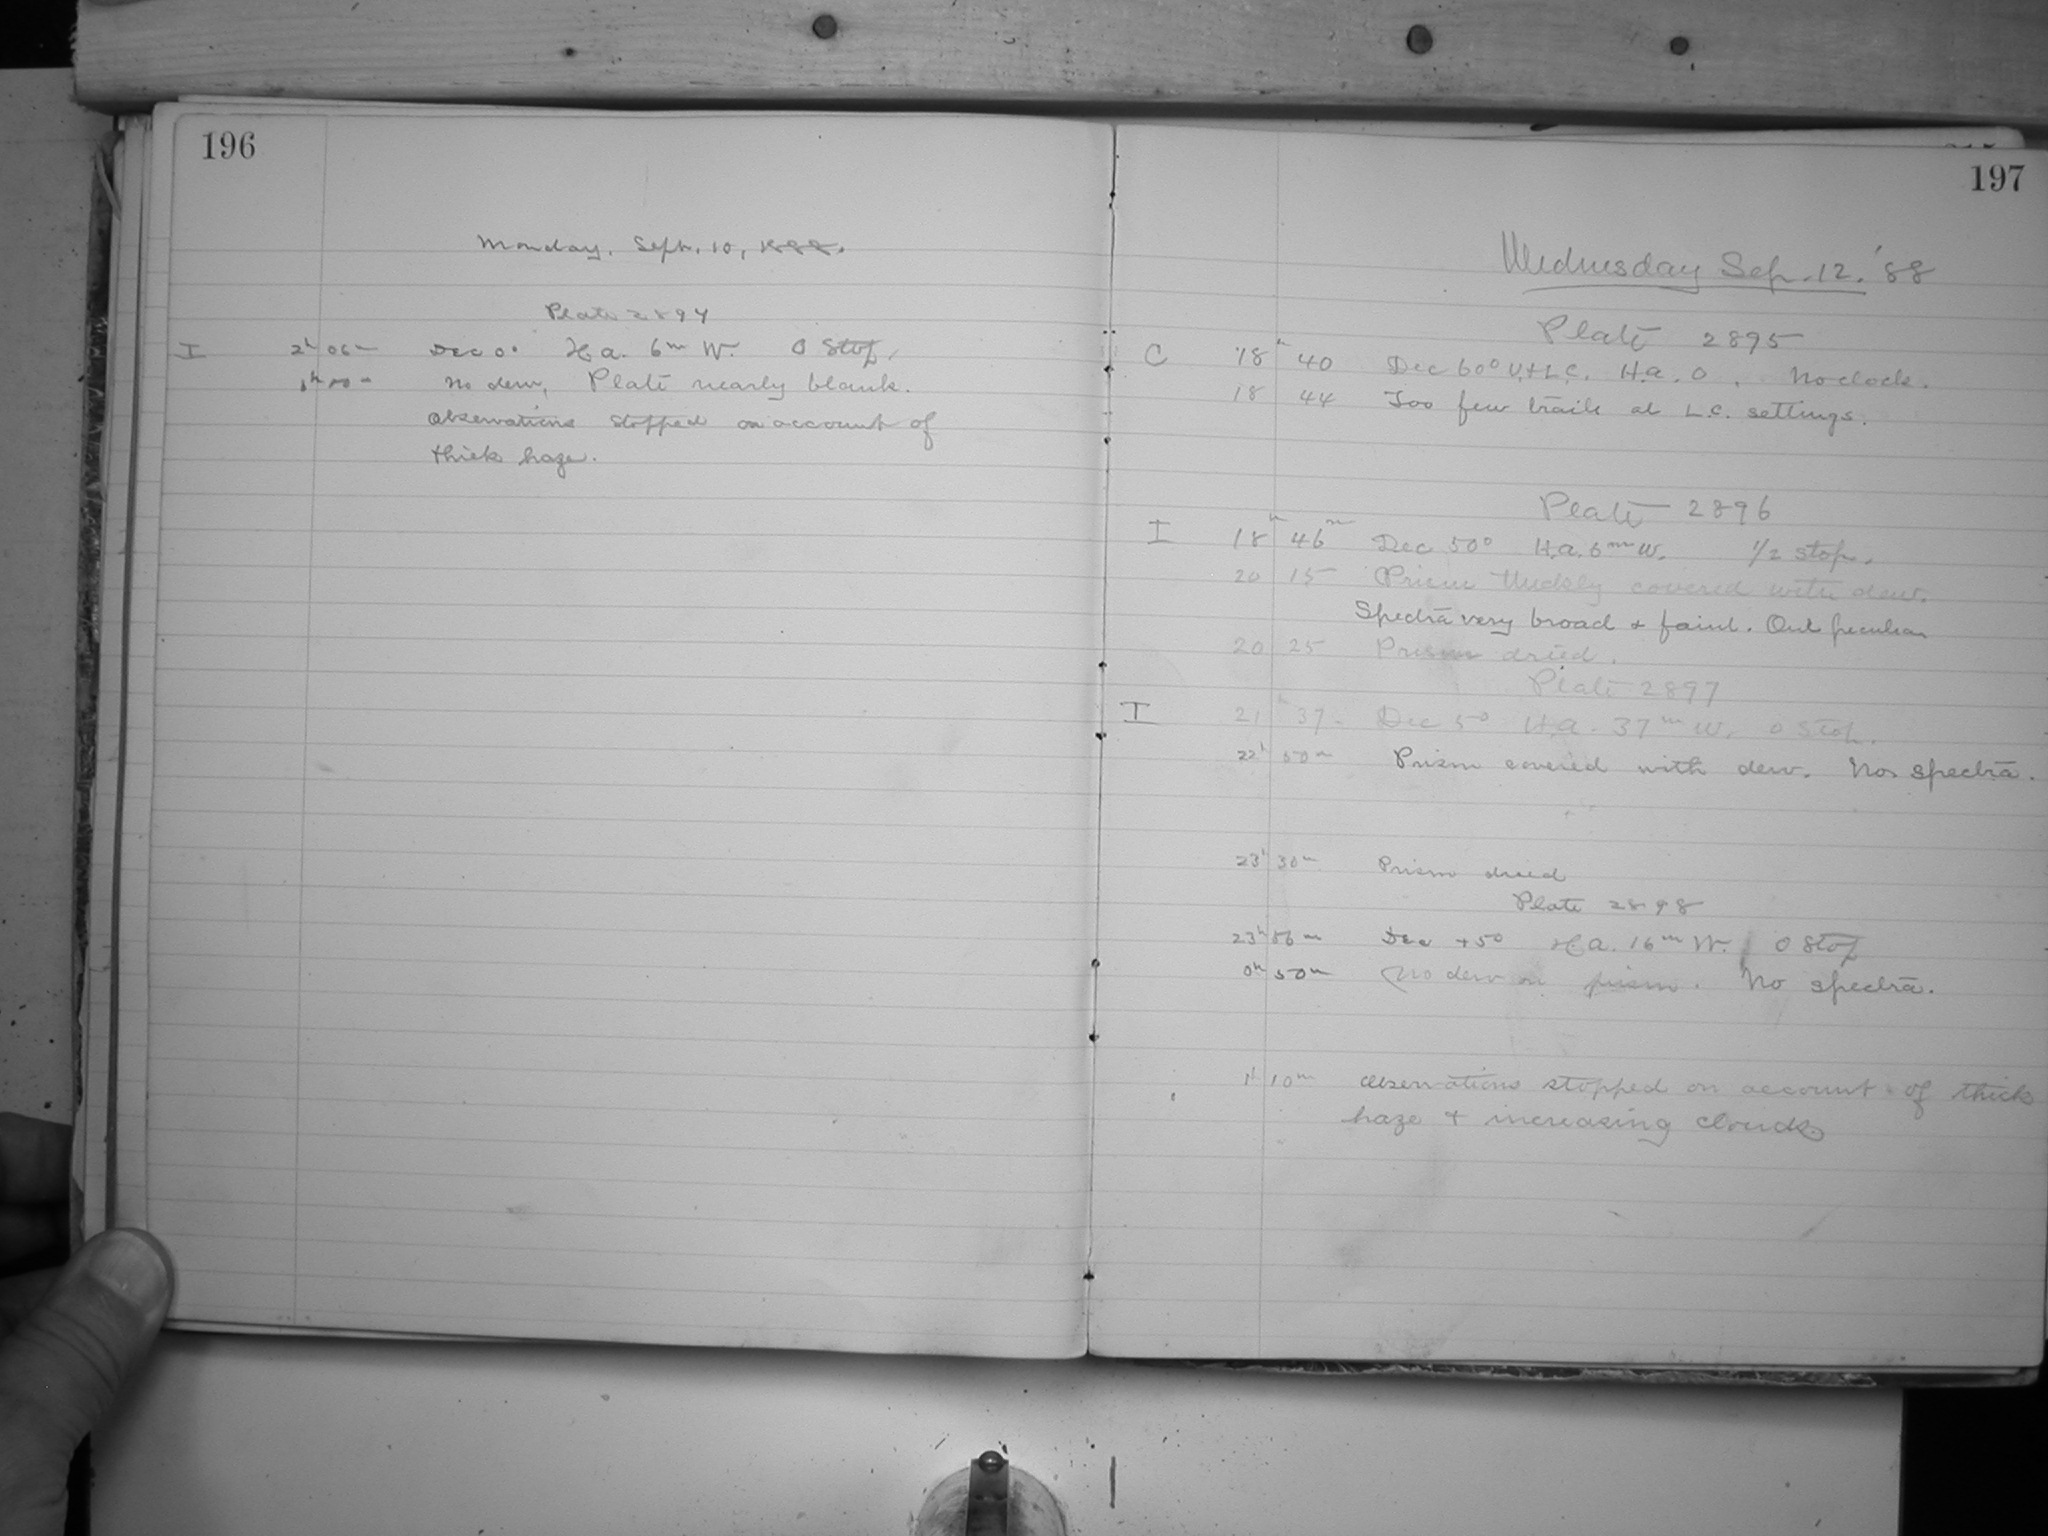 196
Monday. Sept. 10, 1888.
Plate 2894
I 2h 06m Dec 0° H a. 6m W. 0 Stop.
No dew, Plate nearly blank.
Observations stopped on account of
thick haze.
197
Wednesday Sep. 12. '88
Plate 2895
C 18h 40 Dec 60° U.+L.C. H.a. 0. No clock.
18 44 Too few trails at L.C. settings.
Plate 2896
I 18h 46m Dec 50° H.a. 6m W. 1/2 stop.
20 15 Prism thickly covered with dew.
Spectra very broad & faint. One peculiar
20 25 Prism dried.
Plate 2897
I 21h 37. Dec 5° H.a. 37m W. 0 Stop.
22h 50m Prism covered with dew. No spectra.
23h 30m Prism dried
Plate 2898
23h 56m Dec +5° H a. 16m W. 0 Stop
0h 50m No dew on prism. No spectra.
1h 10m Observations stopped on account of thick
haze & increasing clouds